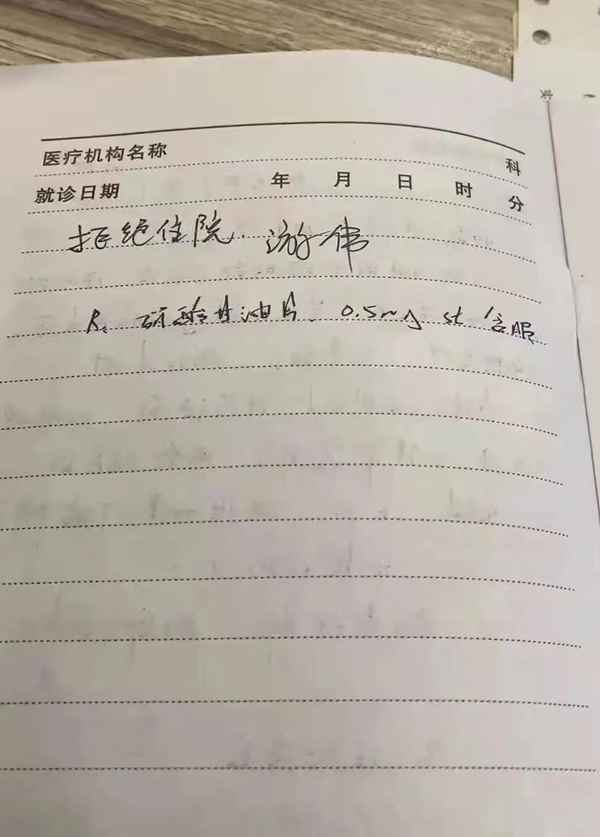 医疗机构名称 科
就诊日期 年 月 日 时 分
拒绝住院. 游伟
R: 硝酸甘油片. 0.5mg st 含服